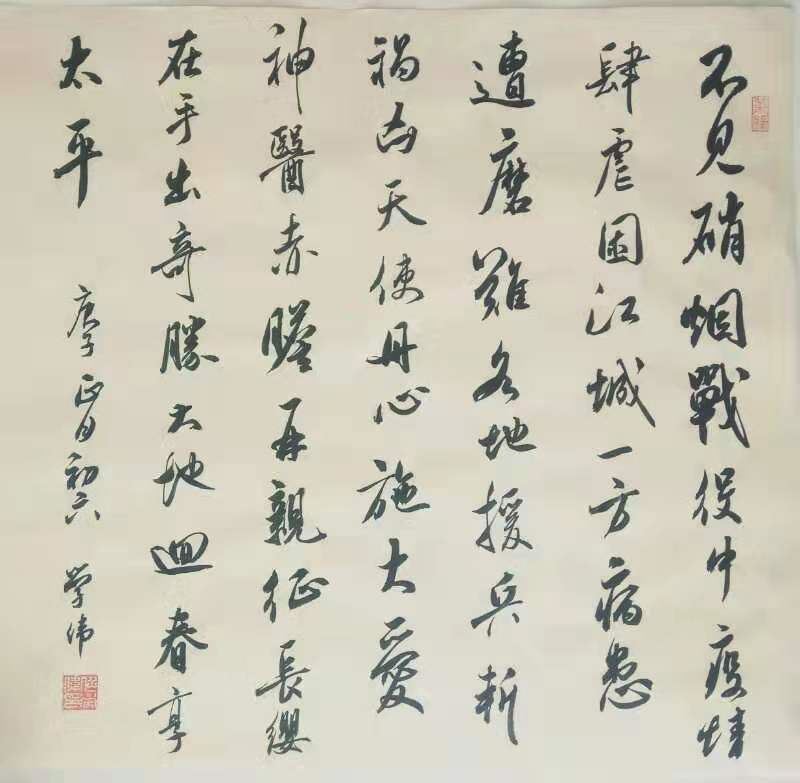 不見硝烟戰役中疫情
肆虐困江城一方病患
遭磨難各地援兵斬
禍凶天使丹心施大愛
神醫赤膽再親征長纓
在手出奇勝大地迴春享
太平
庚子正月初六 學偉